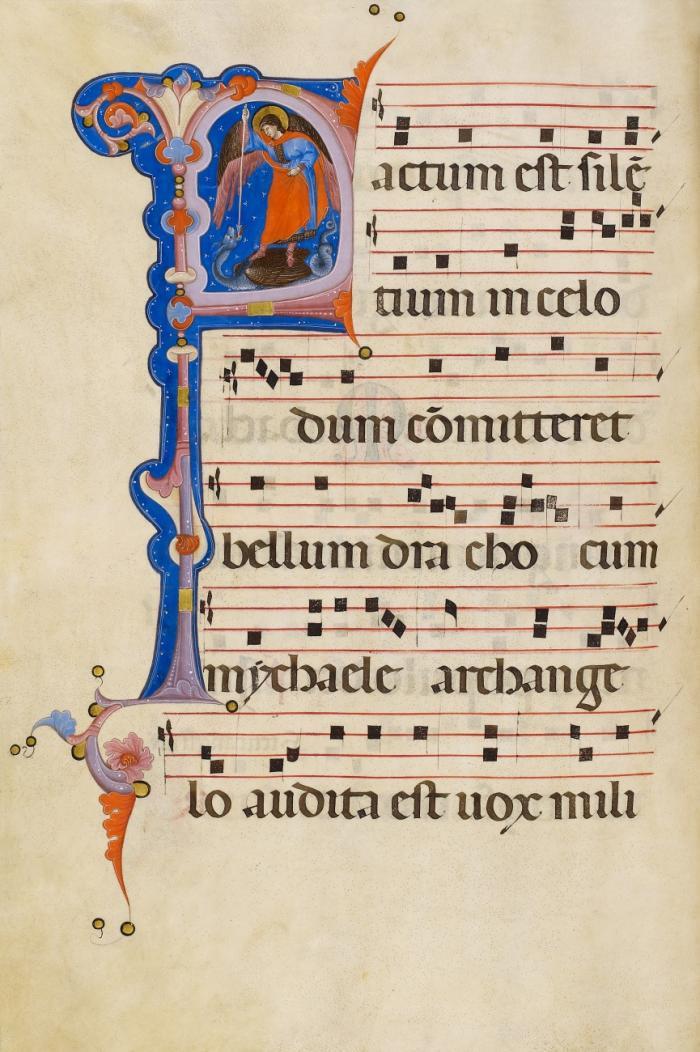 Factum est silē
tium in celo
dum cōmitteret
bellum dracho cum
mychaele archange
lo audita est uox mili